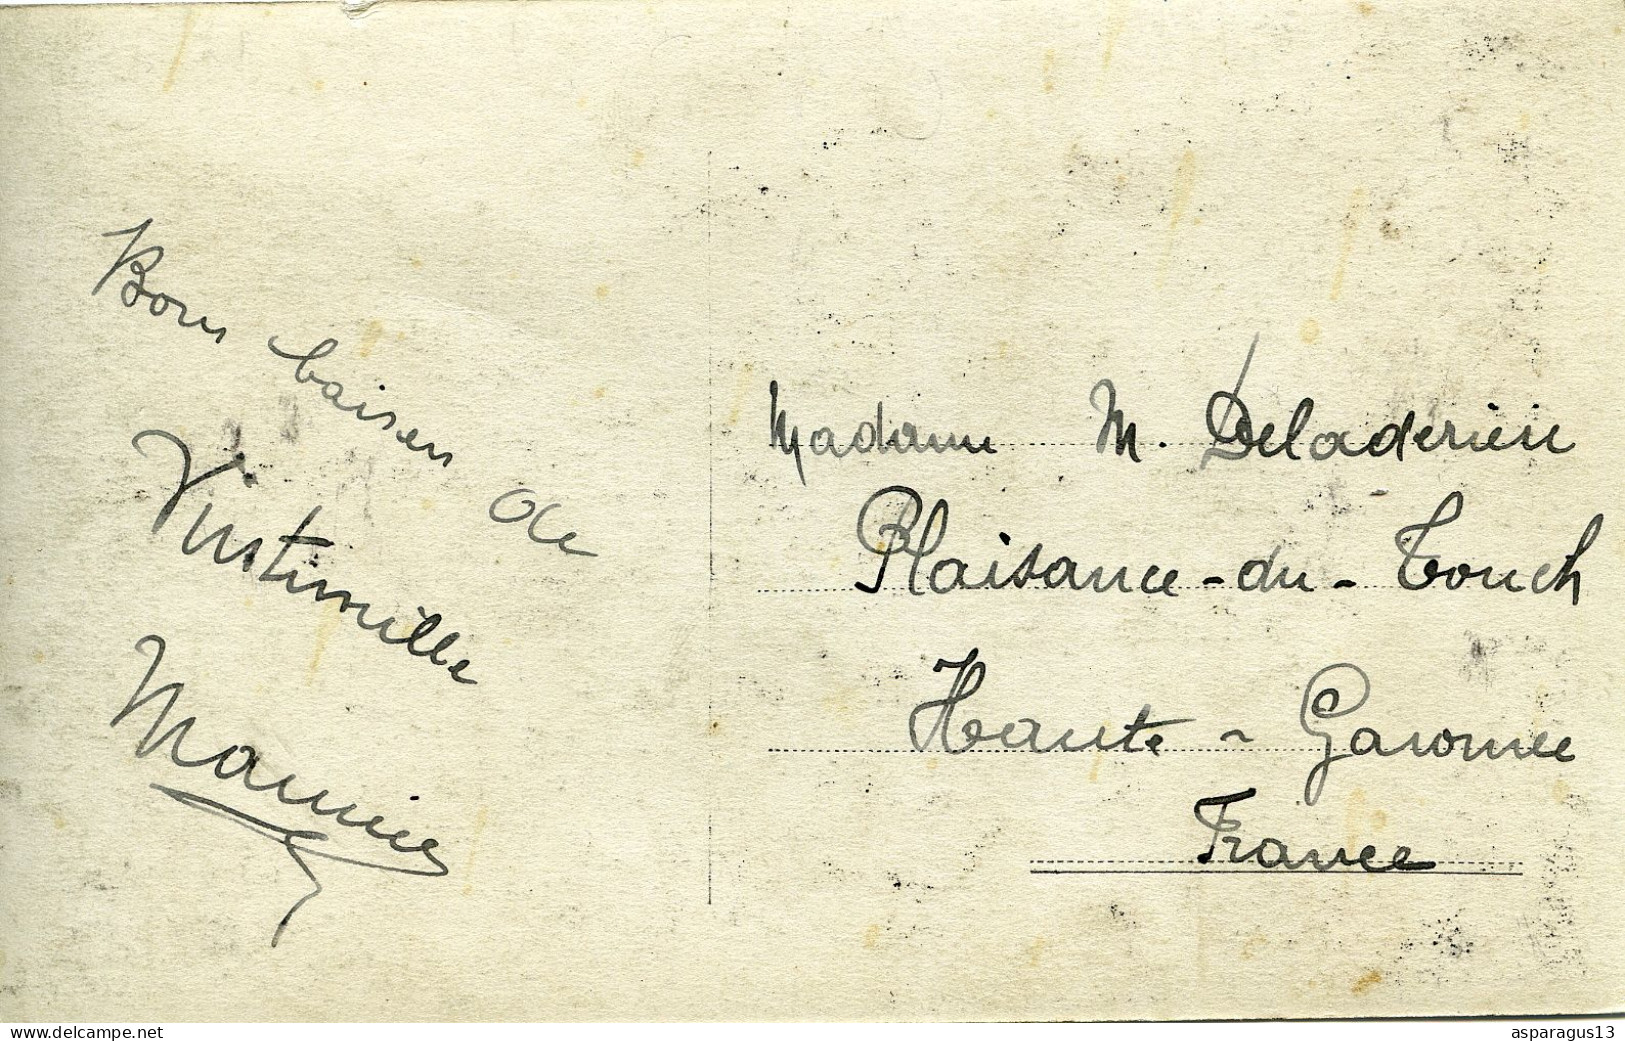 Bons baisers de
Vintimille
Madame M. Deladerière
Plaisance-du-Touch
Haute-Garonne
France
www.delcampe.net
asparagus13